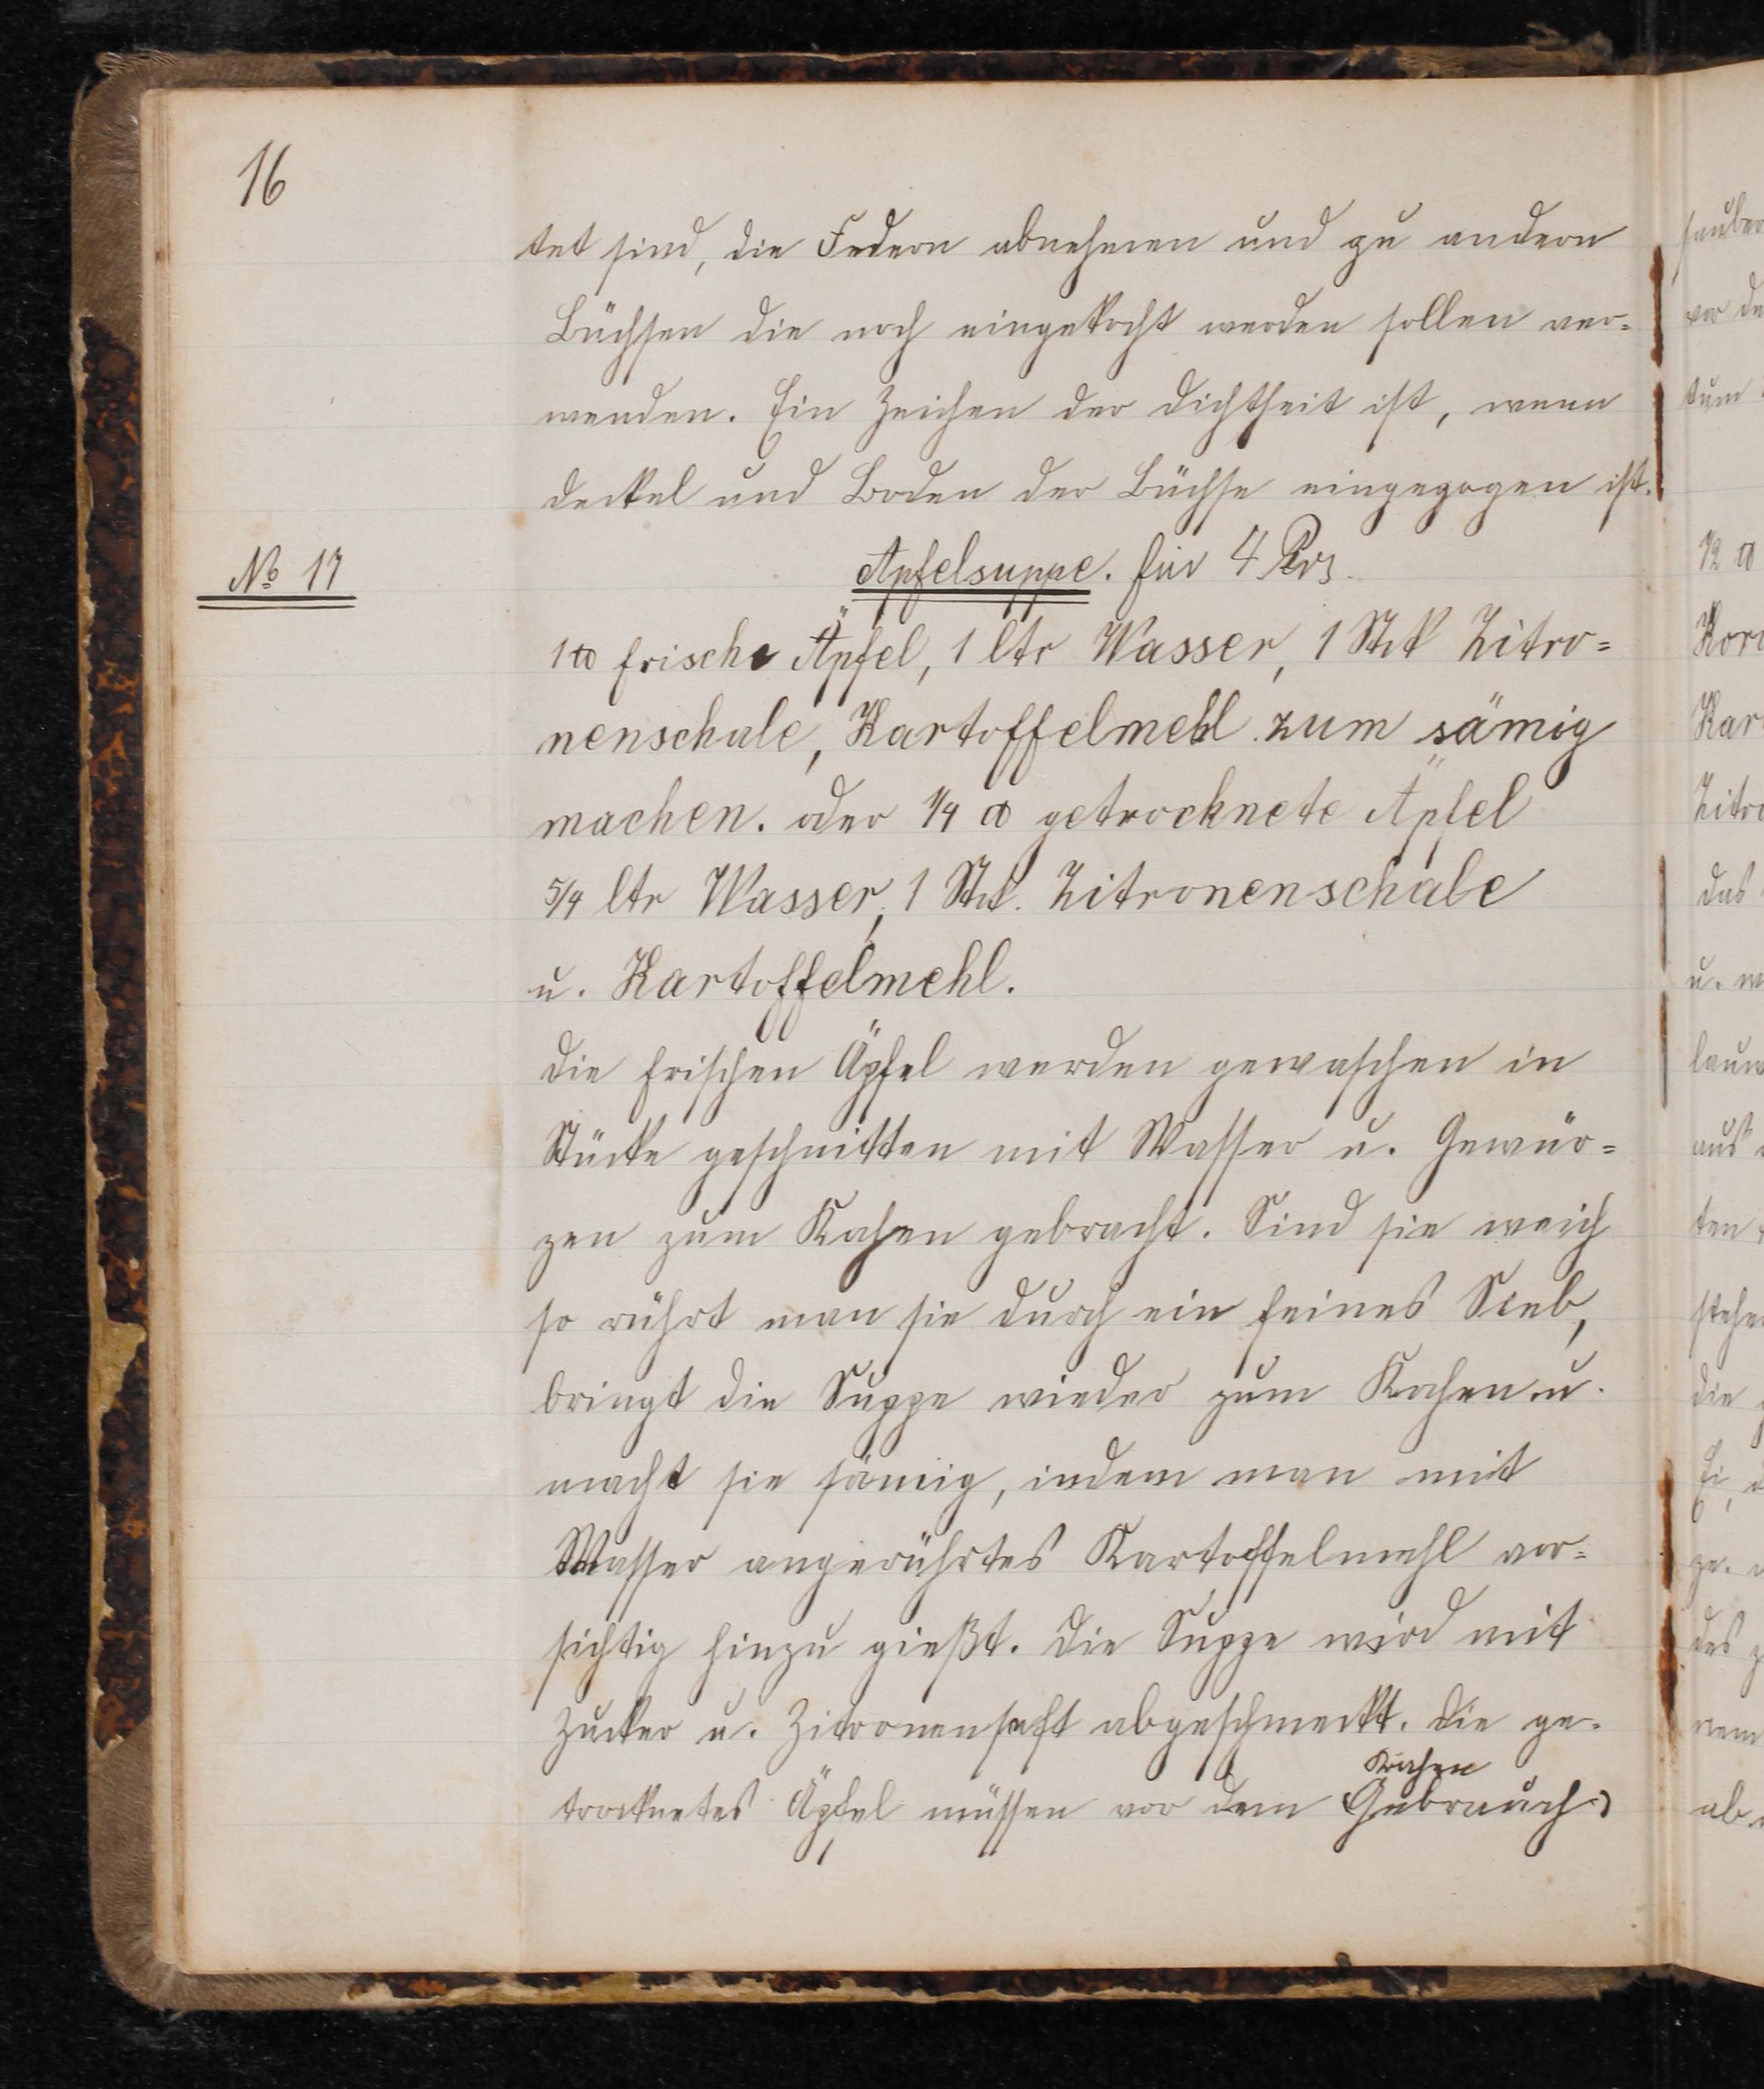 16
tet sind, die Federn abnehmen und zu andern
Büchsen die noch eingekocht werden sollen ver-
wenden. Ein Zeichen der Dichtheit ist, wenn
Deckel und Boden der Büchse eingezogen ist.
No 17
Apfelsuppe. für 4 Pers.
1 ℔ frische Äpfel, 1 ltr Wasser, 1 Stck Zitro=
nenschale, Kartoffelmehl zum sämig
machen. oder 1/4 ℔ getrocknete Äpfel
5/4 ltr Wasser, 1 Stck. Zitronenschale
u. Kartoffelmehl.
Die frischen Äpfel werden gewaschen in
Stücke geschnitten mit Wasser u. Gewür=
zen zum Kochen gebracht. Sind sie weich
so rührt man sie durch ein feines Sieb,
bringt die Suppe wieder zum Kochen u.
macht sie sämig, indem man mit
Wasser angerührtes Kartoffelmehl vor=
sichtig hinzu gießt. Die Suppe wird mit
Zucker u. Zitronensaft abgeschmeckt. Die ge-
Kochen
trocknetes Äpfel müssen vor dem (Gebrauch)
sauber
vor de
tum
1/2 ℔
Kor
Kar
Zitro
das
u. w
lauw
aus
ten
stehe
die
Ei, d
ze.
des z
nem
ab